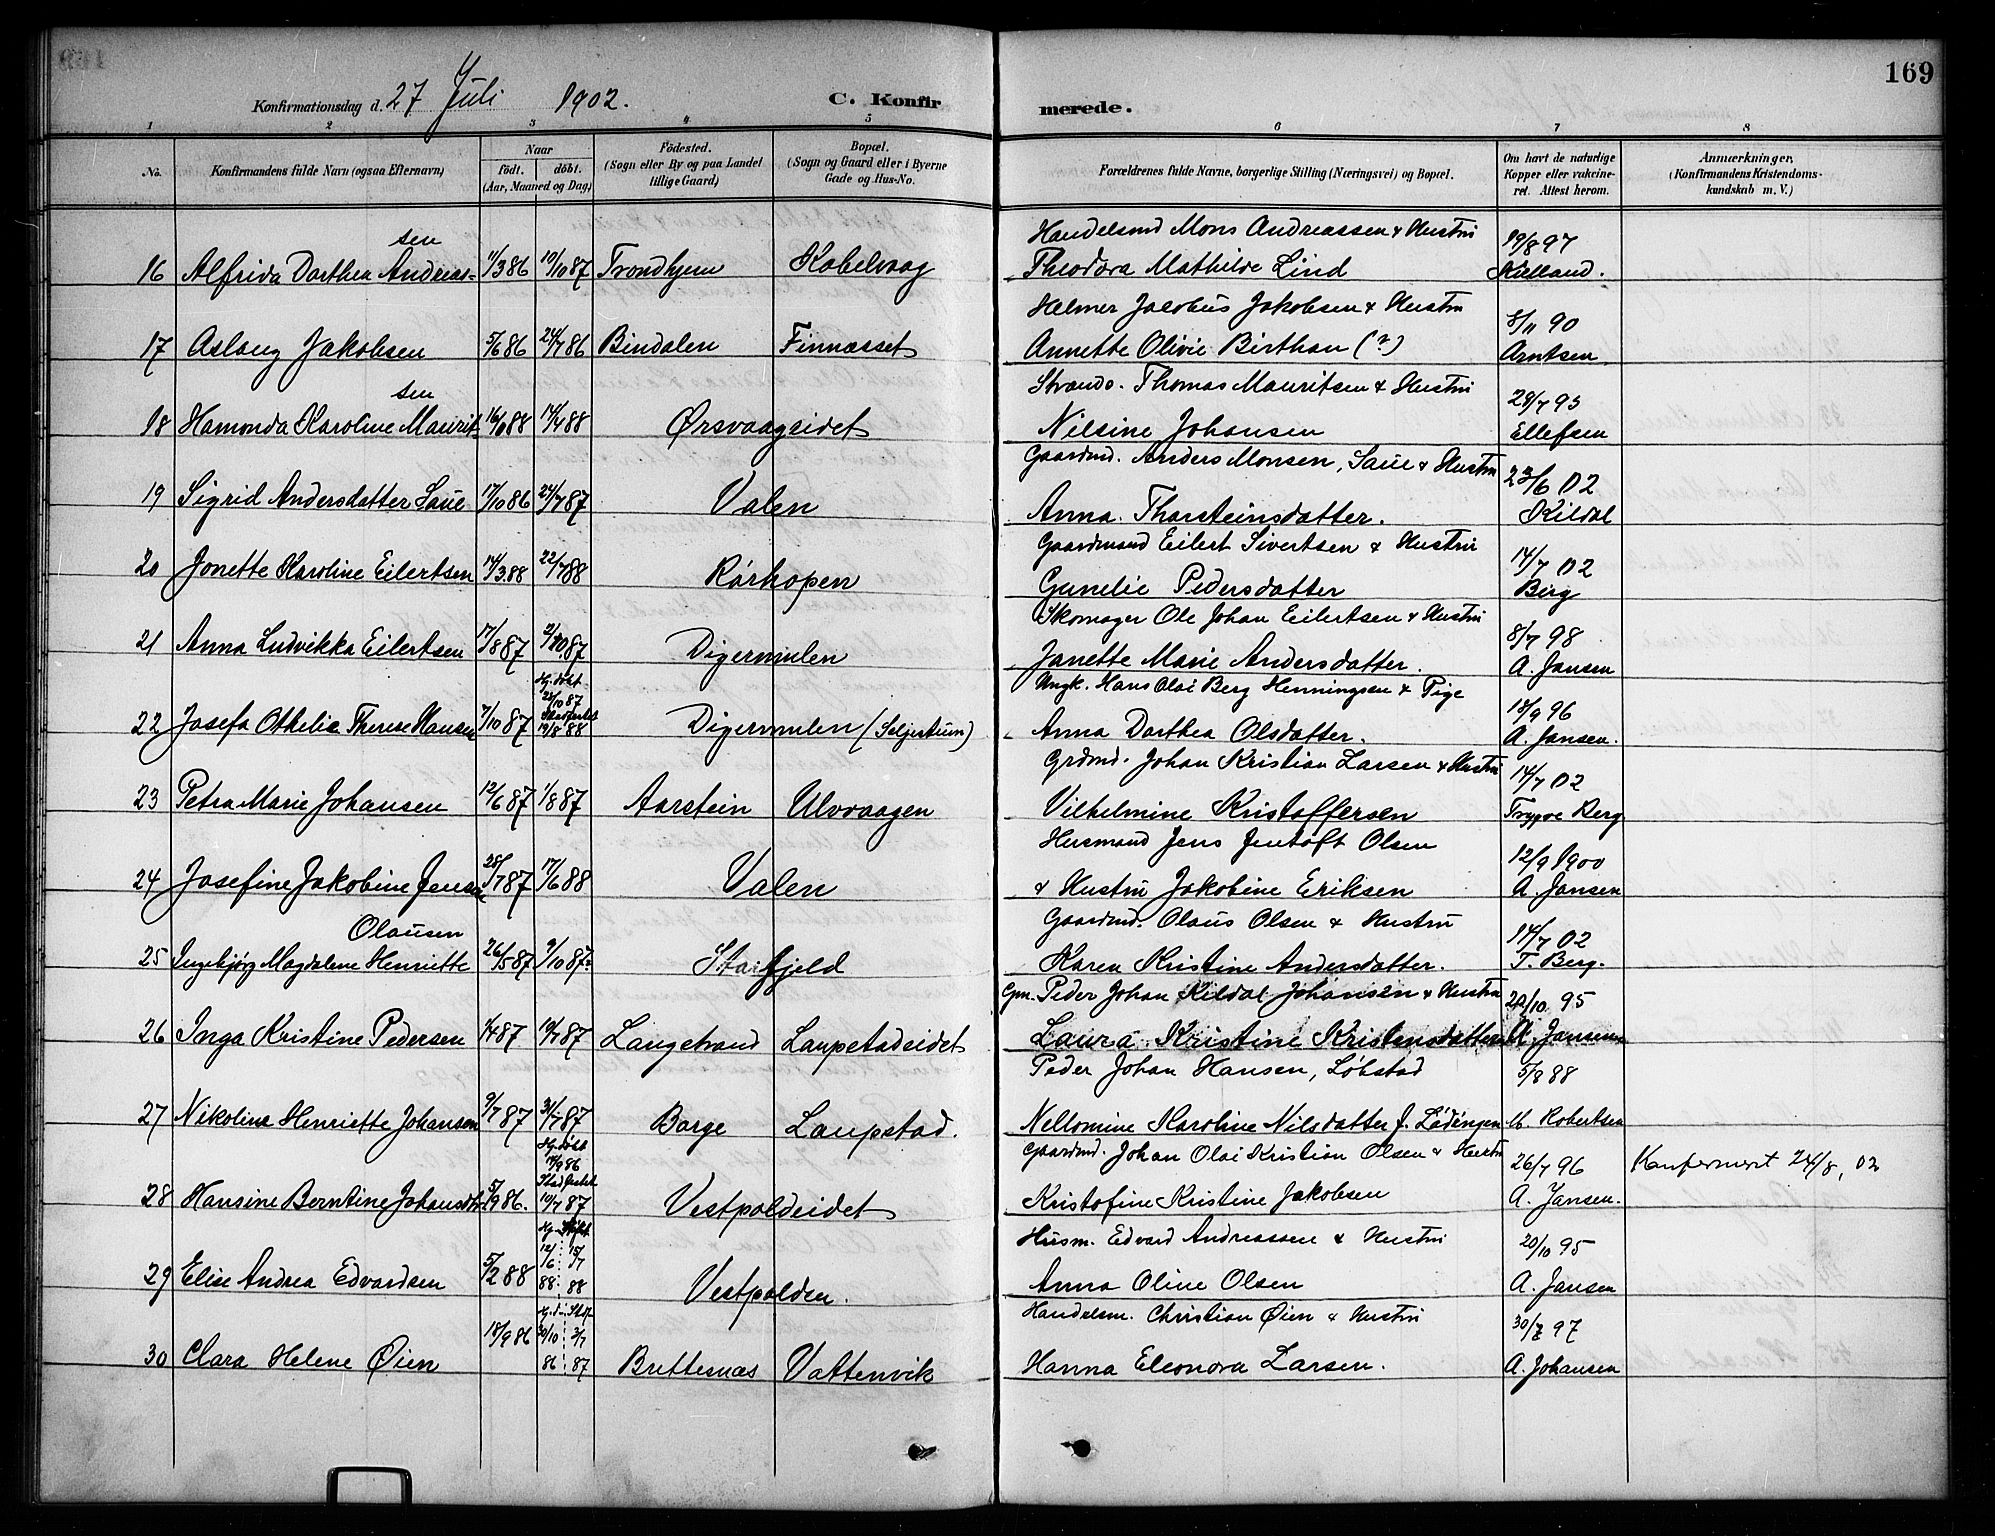 169
Konfirmationsdag d. 27 Juli 1902. C. Konfirmerede.
1 2 3 4 5 6 7 8
No. Konfirmandens fulde Navn (ogsaa Efternavn) Naar født. døbt. (Aar, Maaned og Dag) Fødested. (Sogn eller By og paa Landet tillige Gaard) Bopæl. (Sogn og Gaard eller i Byerne Gade og Hus-No. Forældrenes fulde Navne, borgerlige Stilling (Næringsvei) og Bopæl. Om havt de naturlige Kopper eller vakcineret. Attest herom. Anmærkninger, (Konfirmandens Kristendomskundskab m. V.)
sen Handelsmd Mons Andreassen & Hustru 19/8 97
16 Alfrida Dorthea Andreas- 11/3 86 10/10 87 Trondhjem Kabelvaag Theodora Mathilde Lind Kielland.
Helmer Jacobus Jakobsen & Hustru 8/11 90
17 Aslaug Jakobsen 5/6 86 24/7 86 Bindalen Finnæsset Annette Olivie Birthan (?) Arntsen
sen Strands. Thomas Mauritsen & Hustru 28/7 93
18 Hamonda Karoline Maurit- 88 17/4 88 Ørsvaageidet Nilsine Johansen Ellefsen
Gaardmd. Anders Monsen, Saue & Hustru 23/6 02
19 Sigrid Andersdatter Saue 17/10 86 24/7 87 Valen Anna Thorsteinsdatter. Kildal
Gaardmand Eilert Sivertsen & Hustru 14/7 02
20 Jonette Karoline Eilertsen 14/3 88 22/7 88 Rørhopen Gunelie Pedersdatter Berg
Skomager Ole Johan Eilertsen & Hustru 8/7 98
21 Anna Ludvikka Eilertsen 17/8 87 2/10 87 Digermulen Janette Marie Andersdatter. A. Jansen
Hj. døbt 22/10 87 Ungk. Hans Olai Berg Henningsen & Pige 18/9 96
22 Josefa Othelie Therese Hansen 7/10 87 Stadfestet 19/8 88 Digermulen (Seljestrum) Anna Dorthea Olsdatter. A. Jansen.
Grdmd. Johan Kristian Larsen & Hustru 14/7 02
23 Petra Marie Johansen 12/6 87 1/8 87 Aarstein Ulvvaagen Vilhelmine Kristoffersen Trygve Berg
Husmand Jens Jentoft Olsen 12/9 1900
24 Josefine Jakobine Jensen 28/7 87 17/6 88 Valen & Hustru Jakobine Eriksen A. Jansen
Olausen Gaardmd. Olaus Olsen & Hustru 14/7 02
25 Ingebjørg Magdalene Henriette 26/5 87 9/10 87 Storfjeld Karen Kristine Andersdatter. T. Berg.
Gm. Peder Johan Kildal Johansen & Hustru 20/10 95
26 Inga Kristine Pedersen 1/4 87 10/7 87 Langstrand Laupstadeidet Laura Kristine Kristensdatter A. Jansen
Peder Johan Hansen, Løbstad 5/8 88
27 Nikoline Henriette Johansen 9/7 87 31/7 87 Borge Laupstad. Nellomine Karoline Nilsdatter f. Lødingen M. Robertsen
Hj. døbt 19/9 86 Gaardmd. Johan Olai Kristian Olsen & Hustru 26/7 96 Konfermert 24/8, 02
28 Hansine Berntine Johansdtr 5/9 86. Stadfestet 10/7 87 Vestpoldeidet Kristofine Kristine Jakobsen A. Jansen.
Hj. Stdft. Husm. Edvard Andreassen & Hustru 20/10 95
29 Elise Andrea Edvardsen 5/2 88 12/6 88 15/7 88 Vestpolden. Anna Oline Olsen A. Jansen
Hj. dø. Stdf. Handelsm. Christian Øien & Hustru 30/7 97
30 Clara Helene Øien 18/9 86 30/10 86 3/7 87 Brettesnæs Vattenvik Hanna Eleonora Larsen. A. Johansen